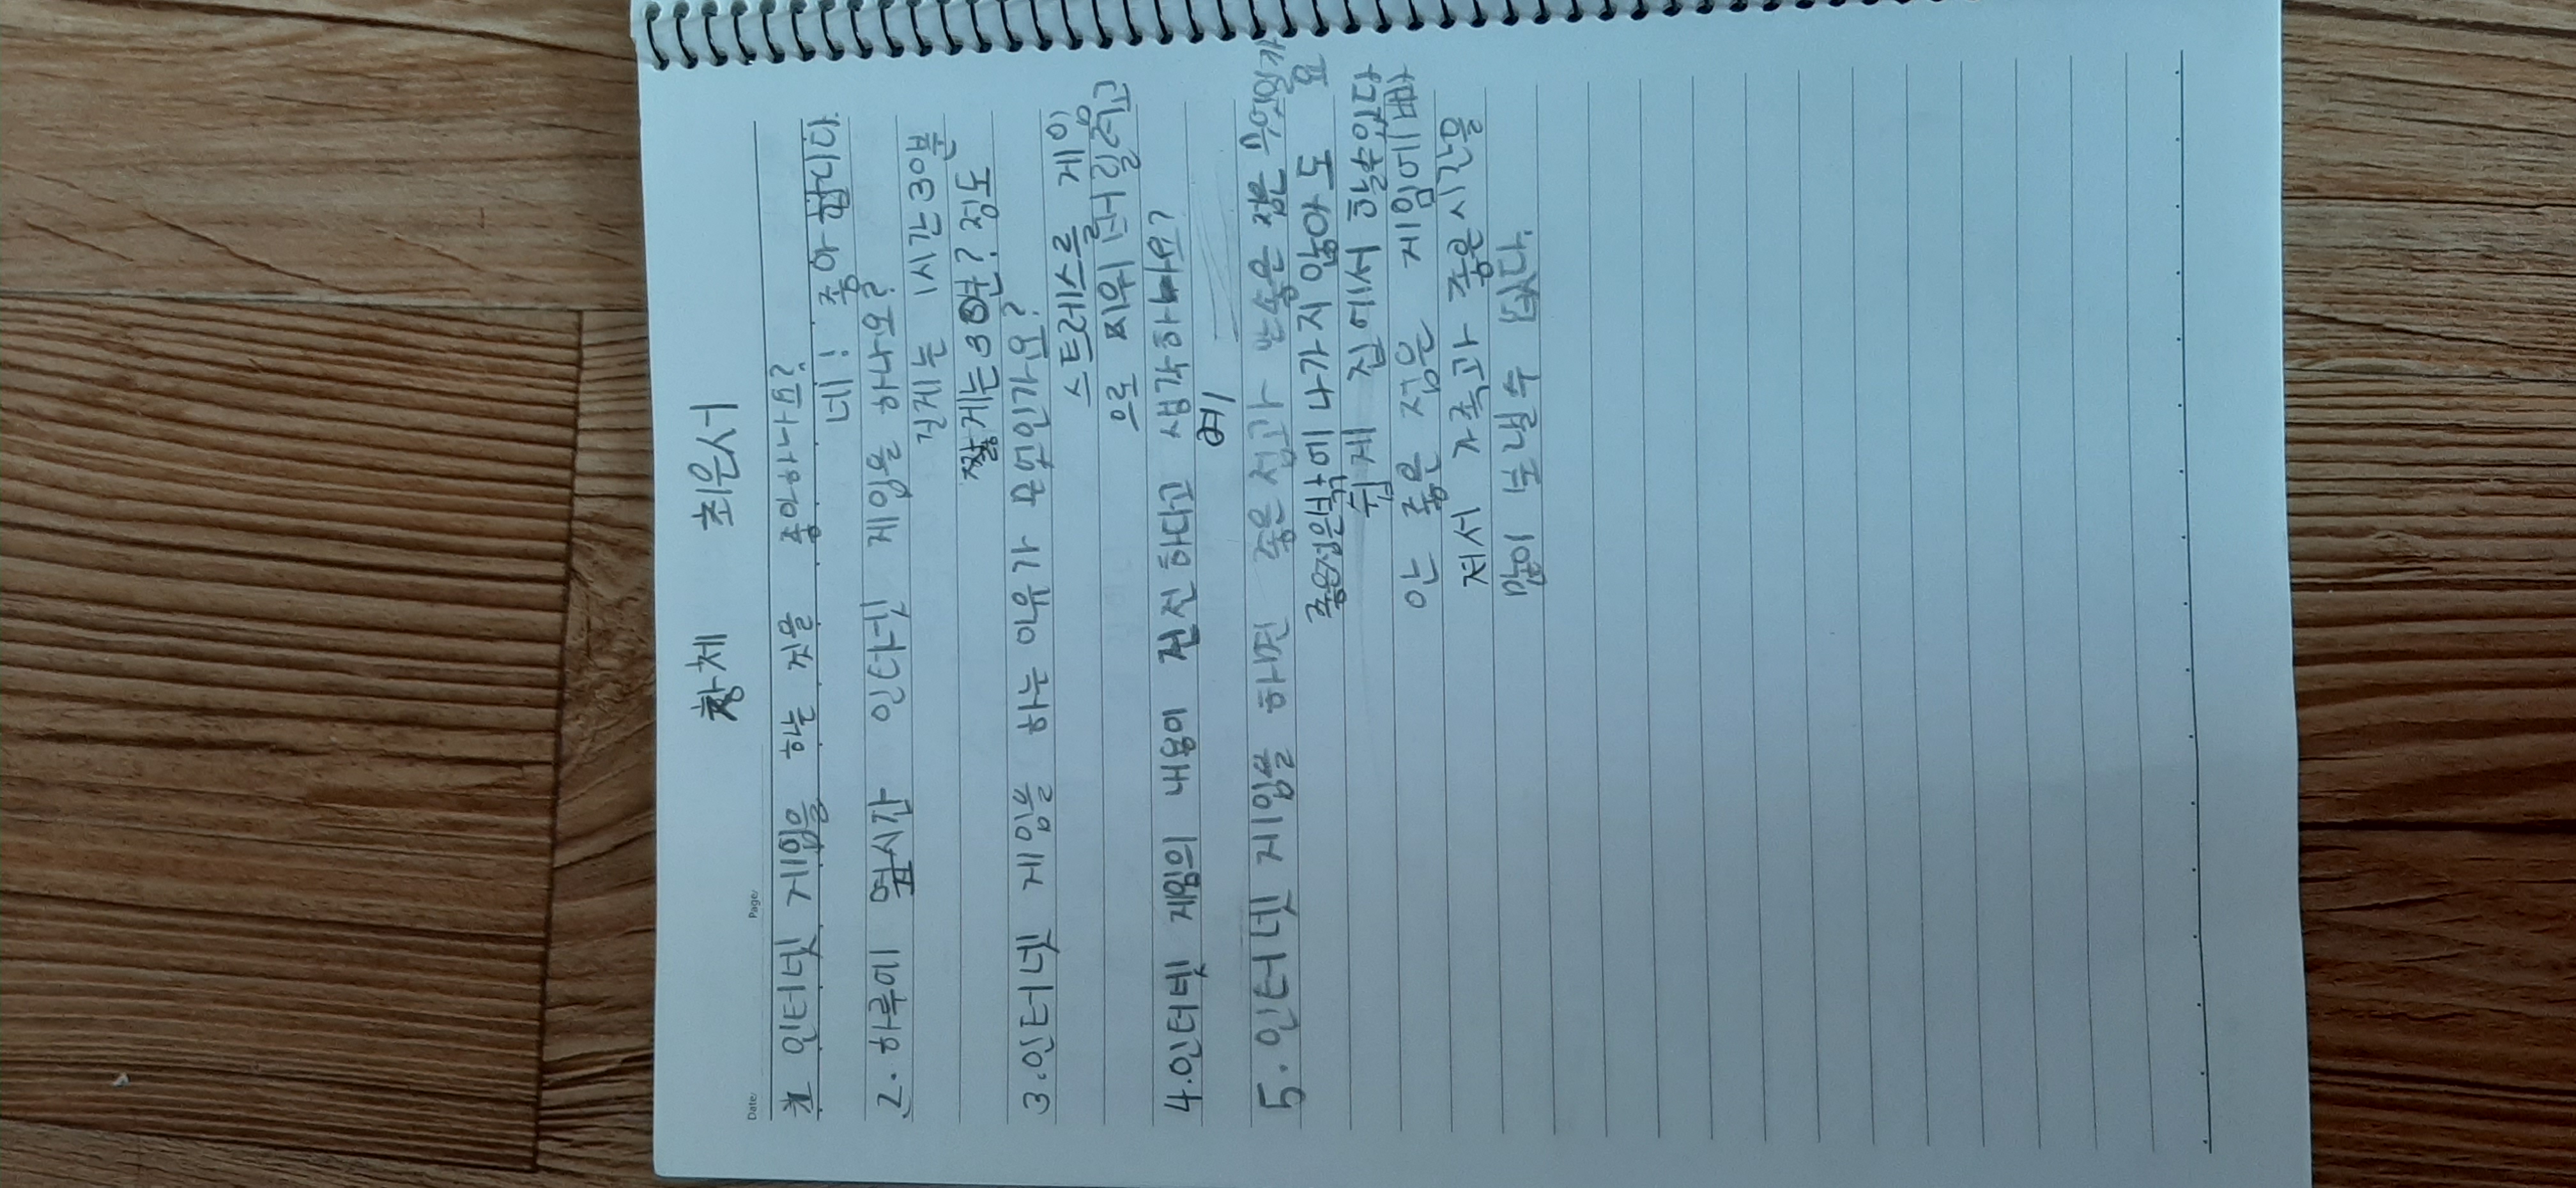 창체 최은서
Date: Page:
1. 인터넷 게임을 하는 것을 좋아하나요?
네! 좋아합니다.
2. 하루에 몇시간 인터넷 게임을 하나요?
길게는 1시간 30분
짧게는 30분? 정도
3. 인터넷 게임을 하는 이유가 무엇인가요?
스트레스를 게임
으로 찌위
4. 인터넷 게임의 내용이 건전하다고 생각하나요?
예
5. 인터넷 게임을 하면 좋은점과 안좋은 점은 무엇인가
요
좋은점은 밖에 나가지 않아도
쉽게 집에서 할수있다
안 좋은 점은 게임에 빠
져서 가족과 좋은시간을
많이 보낼 수 없다.